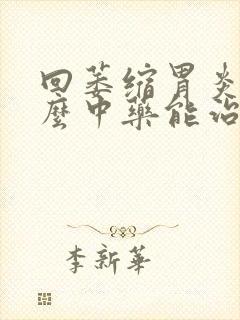 回萎缩胃炎
麼中藥能治
李新華